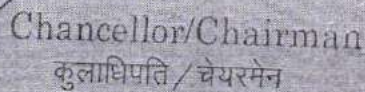 Chancellor/Chairman
कुलाधिपति / चेयरमेन